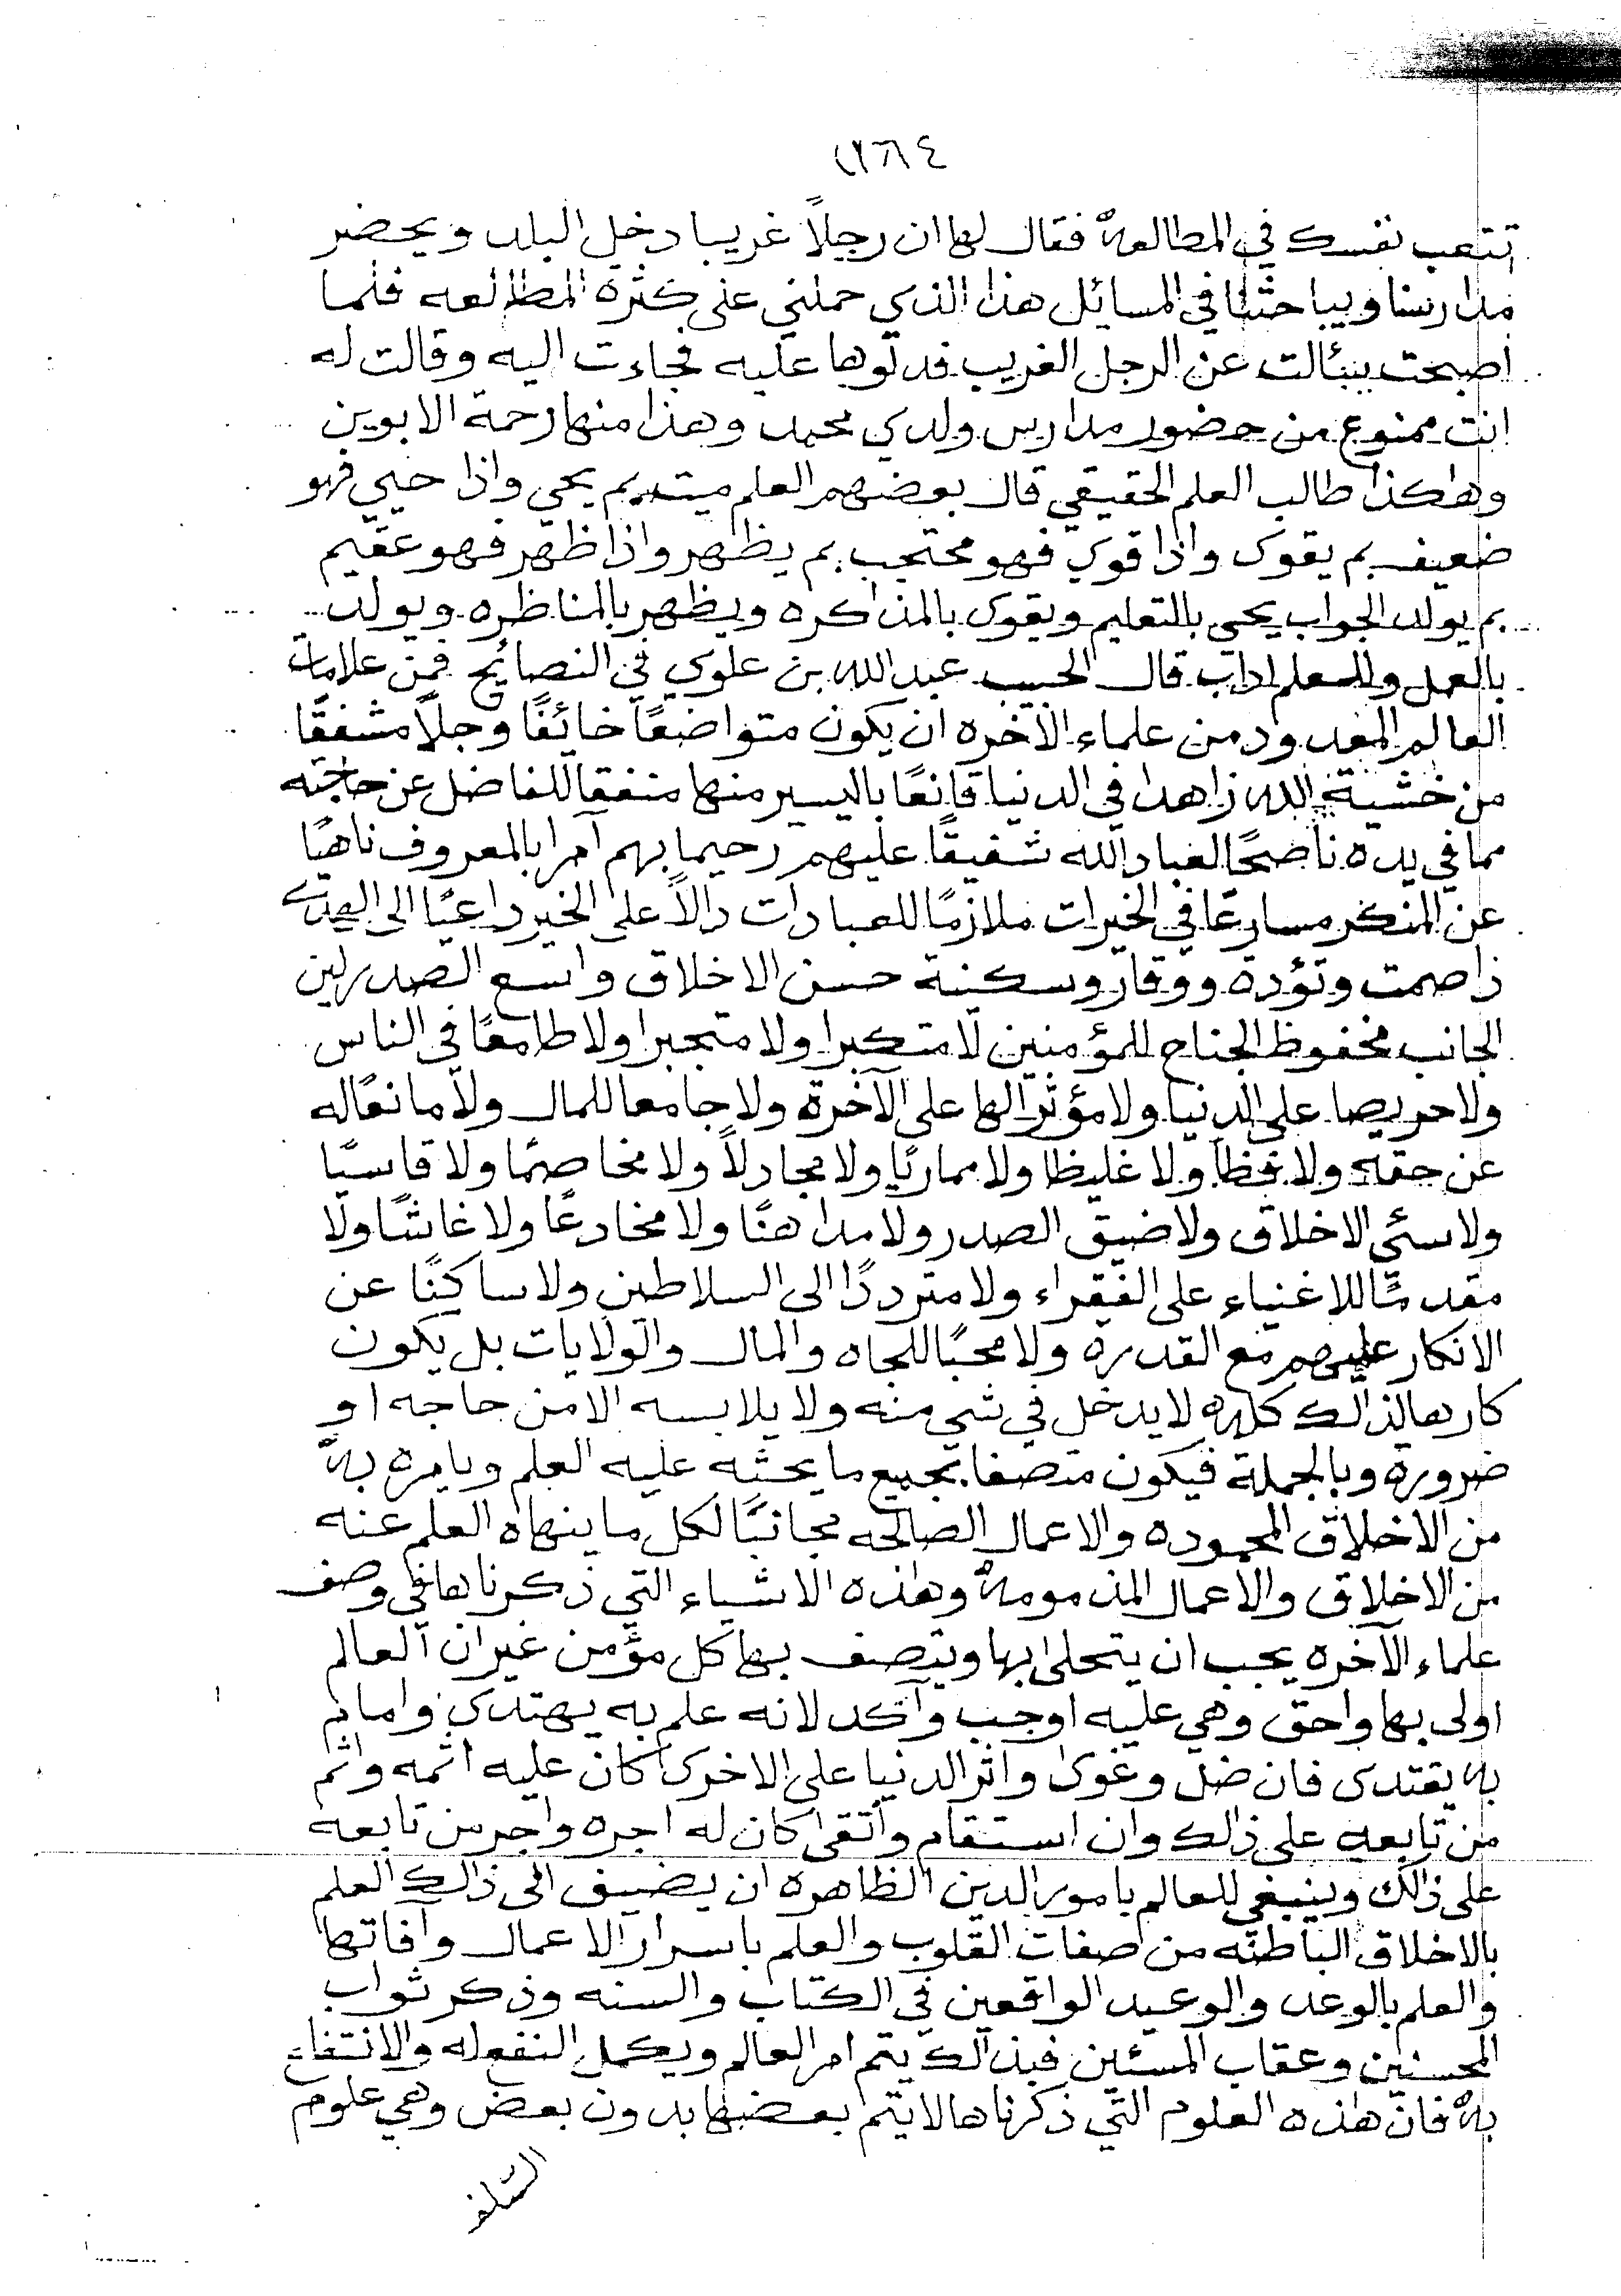 تتعب نفسك في المطالعة فقال لها ان رجلاً غريبا دخل البلد ويحضر
مدارسنا ويباحثنا في المسائل هذا الذي حملني على كثرة المطالعه فلما
اصبحت سئالت عن الرجل الغريب فدلوها عليه فجاءت اليه وقالت له
انت ممنوع من حضور مدارس ولدي محمد وهذا منها رحمة الابوين
وهاكذا طالب العلم الحقيقي قال بعضهم العلم ميت بم يحي واذا حيي فهو
ضعيف بم يقوى واذا قوي فهو محتجب بم يظهر واذا ظهر فهو عقيم
بم يولد الجواب يحي بالتعليم ويقوى بالمذاكره ويظهر بالمناظره ويولد
بالعمل وللمعلم اداب قال الحبيب عبدالله بن علوي في النصايح فمن علامات
العالم المعدود من علماء الآخره ان يكون متواضعًا خائفًا وجلاً مشفقًا
من خشية الله زاهدا في الدنيا قانعًا باليسير منها منفقا للفاضل عن حاجته
مما في يده ناصحًا لعباد الله شفيقًا عليهم رحيما بهم آمرا بالمعروف ناهيًا
عن المنكر مسارعًا في الخيرات ملازمًا للعبادات دالاً على الخير داعيًا الى الهدى
ذا صمت وتؤده ووقار وسكينة حسن الاخلاق واسع الصدر لين
الجانب مخفوظ الجناح للمؤمنين لا متكبرا ولا متجبرا ولا طامعًا في الناس
ولا حريصا على الدنيا ولا مؤثرا لها على الآخرة ولا جامعا للمال ولا مانعًا له
عن حقه ولا فظا ولا غليظا ولا مماريًا ولا مجادلاً ولا مخاصمًا ولا قاسيًا
ولا سئي الاخلاق ولا ضيق الصدر ولا مداهنًا ولا مخادعًا ولا غاشًا ولا
مقدمًا للاغنياء على الفقراء ولا مترددًا الى السلاطين ولا ساكتًا عن
الانكار عليهم مع القدره ولا محبًا للجاه والمال والولايات بل يكون
كارها لذالك كله لا يدخل في شي منه ولا يلابسه الا من حاجه او
ضروره وبالجملة فيكون متصفا بجميع ما يحثه عليه العلم ويامره به
من الاخلاق المحموده والاعمال الصالحه مجانبًا لكل ما ينهاه العلم عنه
من الاخلاق والاعمال المذمومة وهاذه الاشياء التي ذكرناها في وصف
علماء الآخره يجب ان يتحلى بها ويتصف بها كل مؤمن غير ان العالم
اولى بها واحق وهي عليه اوجب وآكد لانه علم به يهتدي وامام
به يقتدى فان ضل وغوى واثر الدنيا على الاخرى كان عليه اثمه واثم
من تابعه على ذالك وان استقام واتقى كان له اجره واجر من تابعه
على ذالك وينبغي للعالم بامور الدين الظاهره ان يضيف الى ذالك العلم
بالاخلاق الباطنه من صفات القلوب والعلم باسرار الاعمال وآفاتها
والعلم بالوعد والوعيد الواقعين في الكتاب والسنه وذكر ثواب
المحسنين وعقاب المسئين فبذالك يتم امر العالم ويكمل النفع له والانتفاع
به فان هاذه العلوم التي ذكرناها لا يتم بعضها بدون بعض وهي علوم